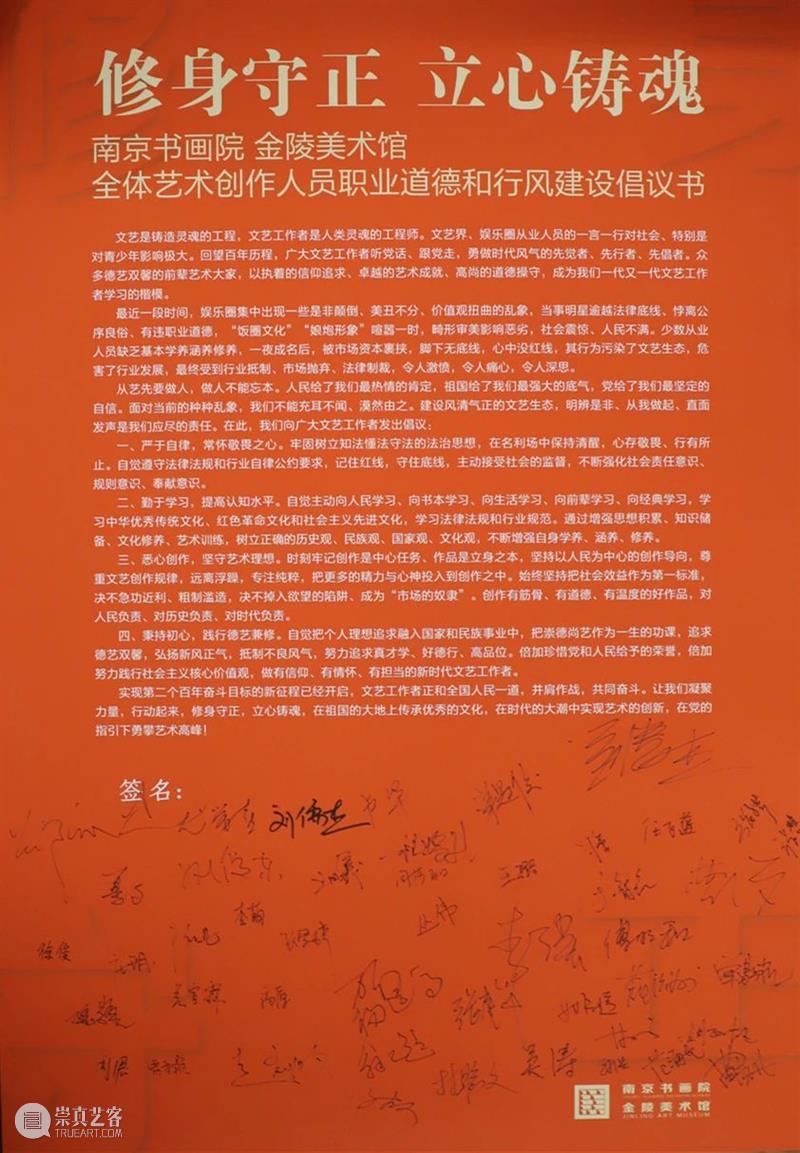 修身守正 立心铸魂
南京书画院 金陵美术馆
全体艺术创作人员职业道德和行风建设倡议书
文艺是铸造灵魂的工程，文艺工作者是人类灵魂的工程师。文艺界、娱乐圈从业人员的一言一行对社会、特别是
对青少年影响极大。回望百年历程，广大文艺工作者听党话、跟党走，勇做时代风气的先觉者、先行者、先倡者。众
多德艺双馨的前辈艺术大家，以执着的信仰追求、卓越的艺术成就、高尚的道德操守，成为我们一代又一代文艺工作
者学习的楷模。
最近一段时间，娱乐圈集中出现一些是非颠倒、美丑不分、价值观扭曲的乱象，当事明星逾越法律底线、悖离公
序良俗、有违职业道德，“饭圈文化”“娘炮形象”喧嚣一时，畸形审美影响恶劣，社会震惊、人民不满。少数从业
人员缺乏基本学养涵养修养，一夜成名后，被市场资本裹挟，脚下无底线，心中没红线，其行为污染了文艺生态，危
害了行业发展，最终受到行业抵制、市场抛弃、法律制裁，令人激愤，令人痛心，令人深思。
从艺先要做人，做人不能忘本。人民给了我们最热情的肯定，祖国给了我们最强大的底气，党给了我们最坚定的
自信。面对当前的种种乱象，我们不能充耳不闻、漠然由之。建设风清气正的文艺生态，明辨是非、从我做起、直面
发声是我们应尽的责任。在此，我们向广大文艺工作者发出倡议：
一、严于自律，常怀敬畏之心。牢固树立知法懂法守法的法治思想，在名利场中保持清醒，心存敬畏、行有所
止。自觉遵守法律法规和行业自律公约要求，记住红线，守住底线，主动接受社会的监督，不断强化社会责任意识、
规则意识、奉献意识。
二、勤于学习，提高认知水平。自觉主动向人民学习、向书本学习、向生活学习、向前辈学习、向经典学习，学
习中华优秀传统文化、红色革命文化和社会主义先进文化，学习法律法规和行业规范。通过增强思想积累、知识储
备、文化修养、艺术训练，树立正确的历史观、民族观、国家观、文化观，不断增强自身学养、涵养、修养。
三、悉心创作，坚守艺术理想。时刻牢记创作是中心任务、作品是立身之本，坚持以人民为中心的创作导向，尊
重文艺创作规律，远离浮躁，专注纯粹，把更多的精力与心神投入到创作之中。始终坚持把社会效益作为第一标准，
决不急功近利、粗制滥造，决不掉入欲望的陷阱、成为“市场的奴隶”。创作有筋骨、有道德、有温度的好作品，对
人民负责、对历史负责、对时代负责。
四、秉持初心，践行德艺兼修。自觉把个人理想追求融入国家和民族事业中，把崇德尚艺作为一生的功课，追求
德艺双馨，弘扬新风正气，抵制不良风气，努力追求真才学、好德行、高品位。倍加珍惜党和人民给予的荣誉，倍加
努力践行社会主义核心价值观，做有信仰、有情怀、有担当的新时代文艺工作者。
实现第二个百年奋斗目标的新征程已经开启，文艺工作者正和全国人民一道，并肩作战，共同奋斗。让我们凝聚
力量，行动起来，修身守正，立心铸魂，在祖国的大地上传承优秀的文化，在时代的大潮中实现艺术的创新，在党的
指引下勇攀艺术高峰！
签名：
刘伟志
徐俊
吴涛
南京书画院
金陵美术馆
JINLING ART MUSEUM
崇真艺客
TRUEART.COM